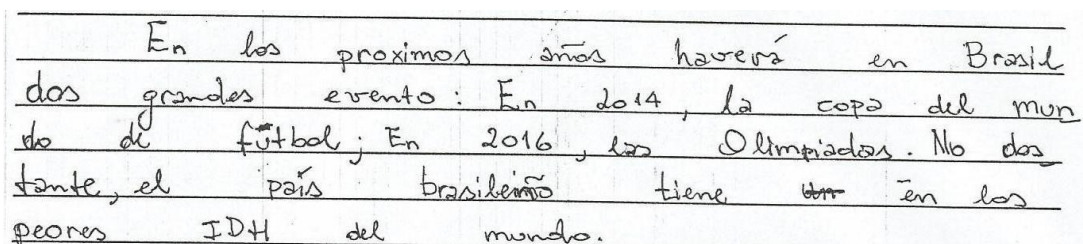 En los proximos años haverá en Brasil
dos grandes evento: En 2014, la copa del mun
do de fútbol; En 2016, las Olimpiadas. No dos
tante, el país brasileiño tiene en los
peores IDH del mundo.